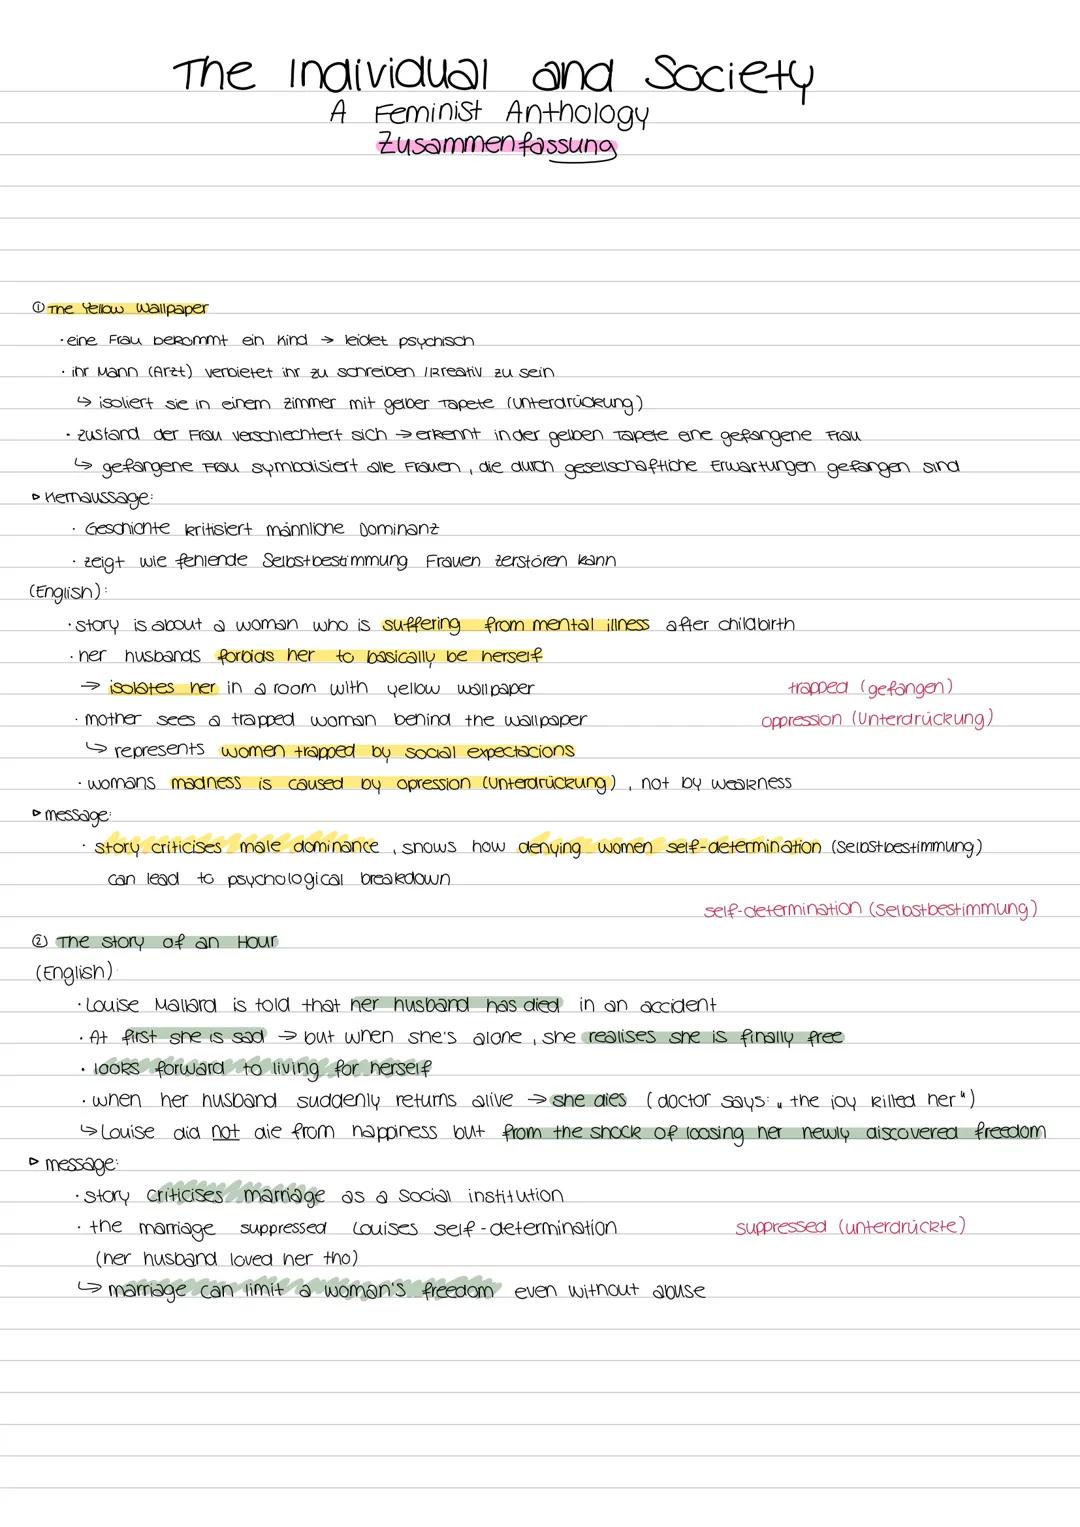 The Individual and Society
A Feminist Anthology
Zusammenfassung
① The Yellow Wallpaper
· eine Frau bekommt ein Kind → leidet psychisch
· ihr Mann (Arzt) verbietet ihr zu schreiben / kreativ zu sein
↳ isoliert sie in einem Zimmer mit gelber Tapete (Unterdrückung)
· Zustand der Frau verschlechtert sich → erkennt in der gelben Tapete eine gefangene Frau
↳ gefangene Frau symbolisiert alle Frauen, die durch gesellschaftliche Erwartungen gefangen sind
▷ Kernaussage:
· Geschichte kritisiert männliche Dominanz
· zeigt wie fehlende Selbstbestimmung Frauen zerstören kann
(English):
· story is about a woman who is suffering from mental illness after childbirth
· her husbands forbids her to basically be herself
→ isolates her in a room with yellow wallpaper
trapped (gefangen)
· mother sees a trapped woman behind the wallpaper
oppression (Unterdrückung)
↳ represents women trapped by social expectacions
· womans madness is caused by opression (Unterdrückung), not by weakness
▷ message:
· story criticises male dominance, shows how denying women self-determination (Selbstbestimmung)
can lead to psychological breakdown
self-determination (Selbstbestimmung)
② The story of an Hour
(English)
· Louise Mallard is told that her husband has died in an accident
· At first she is sad → but when she's alone, she realises she is finally free
· looks forward to living for herself
· when her husband suddenly returns alive → she dies (doctor says: „the joy killed her“)
↳ Louise did not die from happiness but from the shock of loosing her newly discovered freedom
▷ message:
· story criticises marriage as a social institution
· the marriage suppressed Louises self-determination
suppressed (unterdrückte)
(her husband loved her tho)
↳ marriage can limit a woman's freedom even without abuse